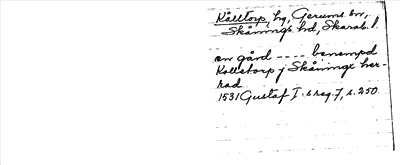 Kålltorp, hg, Gerums sn,
Skånings hd, Skarab. l.
en gård ---- benempd
Kolletorp j Skåninge her-
rad
1531 Gustaf I:s reg. 7, s. 250.